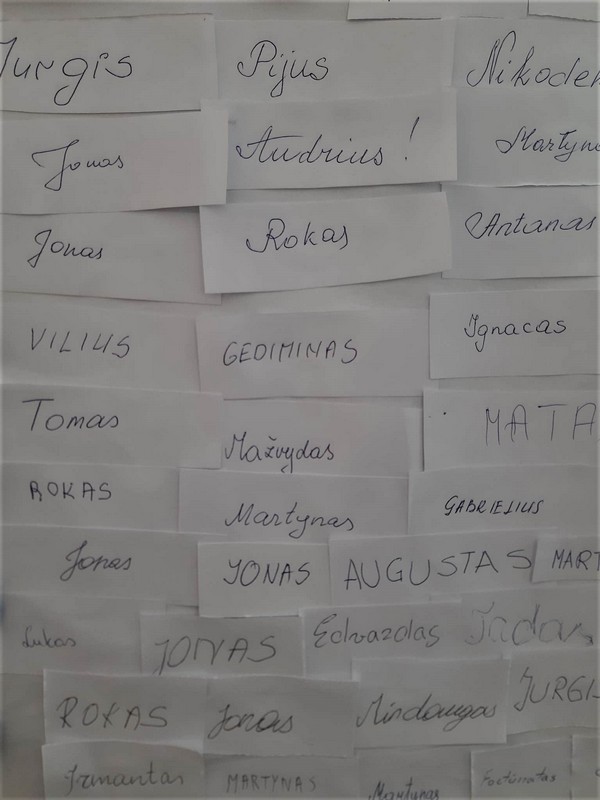 Jurgis Pijus Nikode
Jonas Audrius! Martyn
Jonas Rokas Antanas
VILIUS GEDIMINAS Ignacas
Tomas Mažvydas MATA
ROKAS Martynas GABRIELIUS
Jonas JONAS AUGUSTAS MART
Lukas JONAS Edvardas
ROKAS Jonas Mindaugas JURGI
Irmantas MARTYNAS Martynas